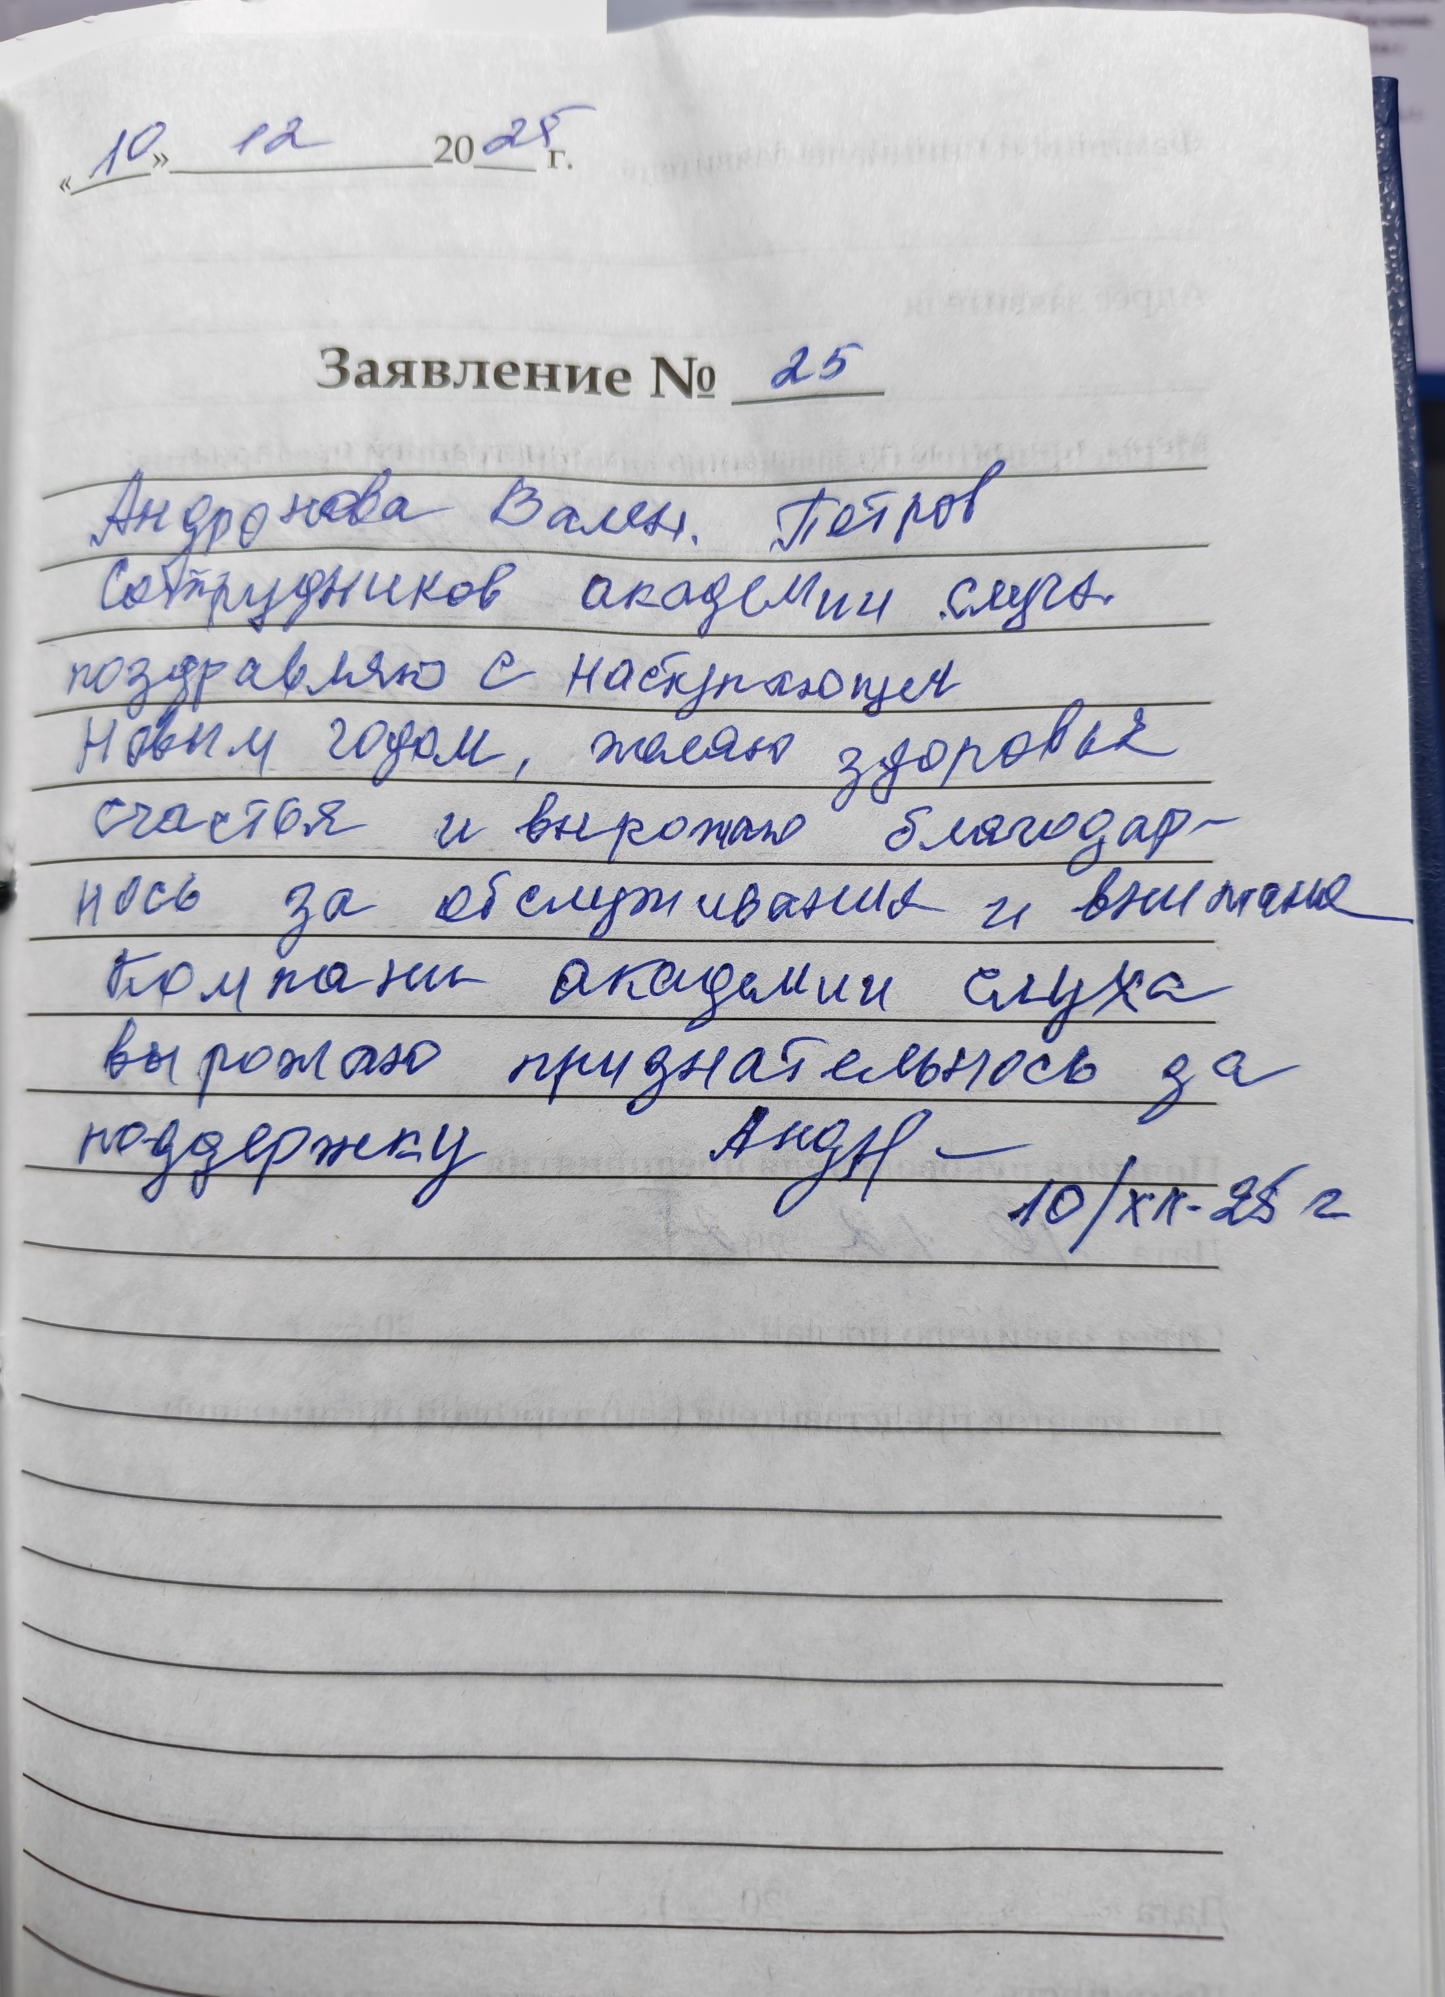 «10» 12 2025 г.
Заявление № 25
Андронова Вален. Петров
Сотрудников академии слуха
поздравляю с наступающем
новым годом, желаю здоровья
счастья и выражаю благодар-
нось за обслуживания и внимание
Компани академии слуха
выражаю признательнось за
поддержку
10/XII-25 г